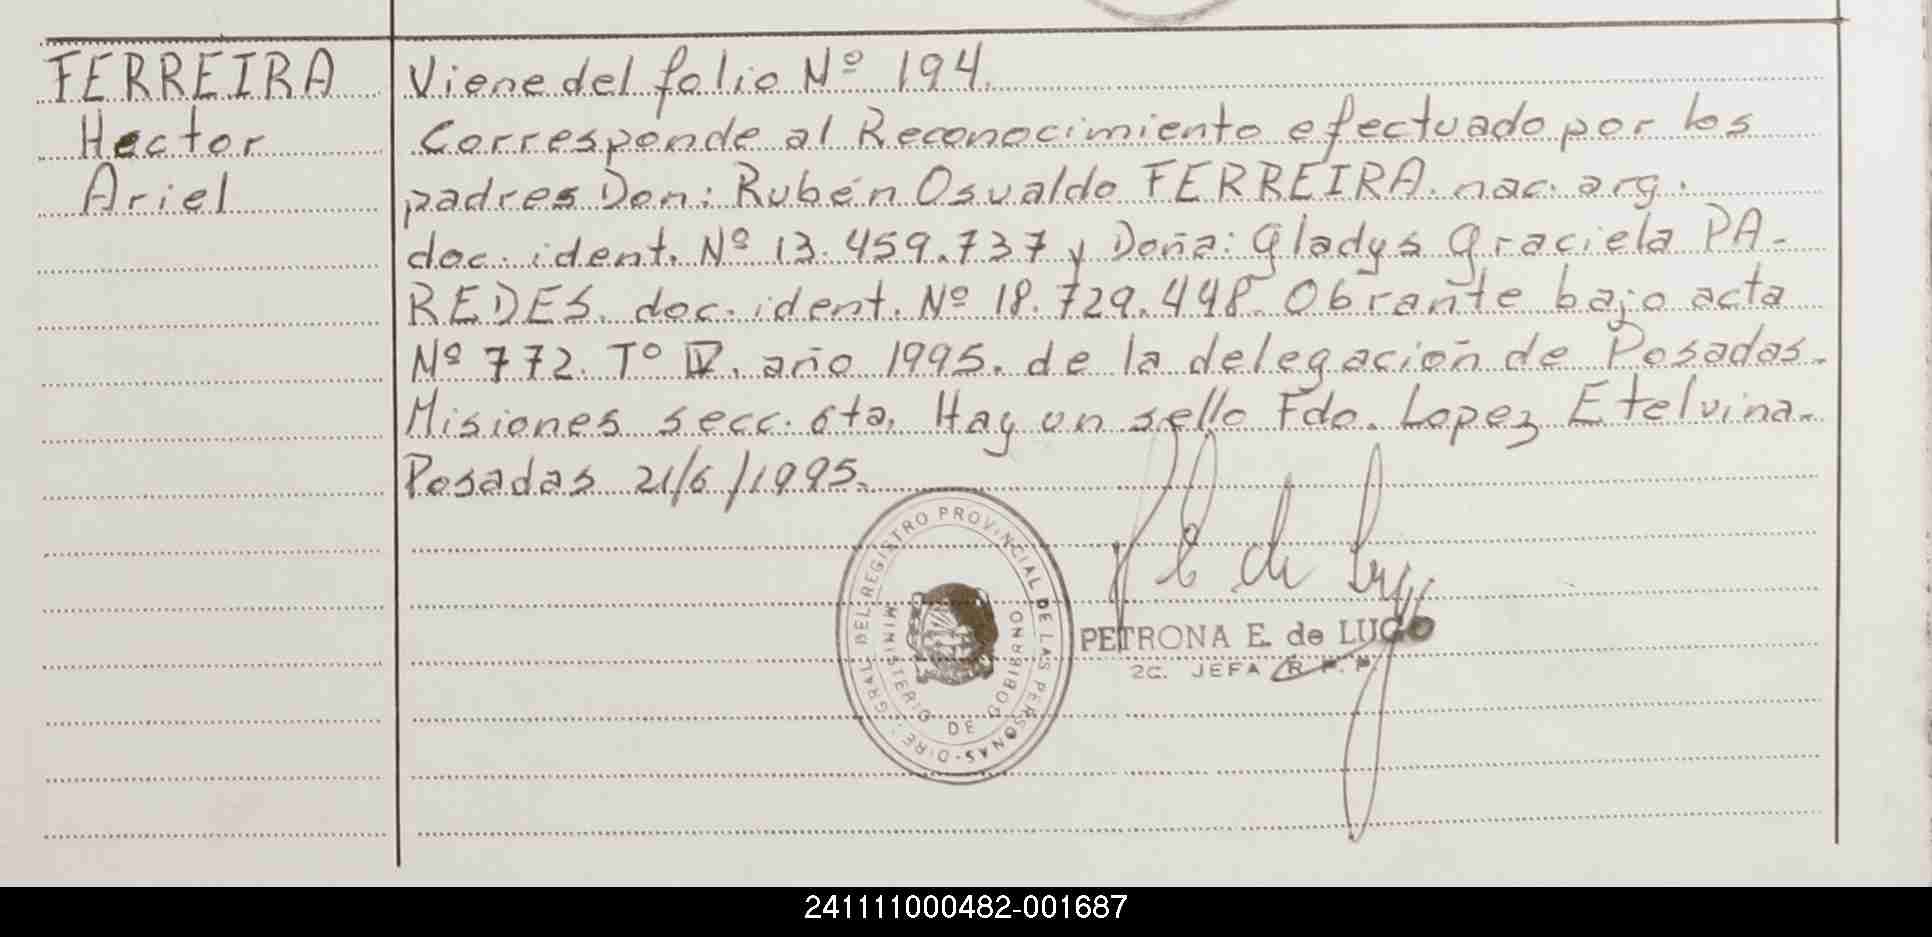 FERREIRA
Hector
Ariel
Viene del folio Nº 194.
Corresponde al Reconocimiento efectuado por los
padres Don: Rubén Osvaldo FERREIRA. nac. arg.
doc. ident. Nº 13.459.737 y Doña: Gladys Graciela PA-
REDES. doc. ident. Nº 18.729.448. Obrante bajo acta
Nº 772. Tº IV. año 1995. de la delegación de Posadas.
Misiones secc. 6ta. Hay un sello Fdo. Lopez Etelvina.
Posadas 21/6/1995.
DIRE. GRAL DEL REGISTRO PROVINCIAL DE LAS PERSONAS
MINISTERIO DE GOBIERNO
PETRONA E. de LUGO
2C. JEFA R. P. P.
241111000482-001687